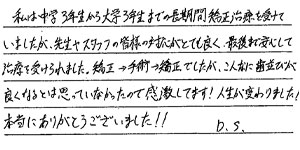 私は中学3年生から大学3年生までの長期間矯正治療を受けて
いましたが、先生やスタッフの皆様の対応がとても良く、最後まで安心して
治療を受けられました。矯正→手術→矯正でしたが、こんなに歯並びが
良くなるとは思っていなかったので感激してます!人生が変わりました!
本当にありがとうございました!!
D.S.